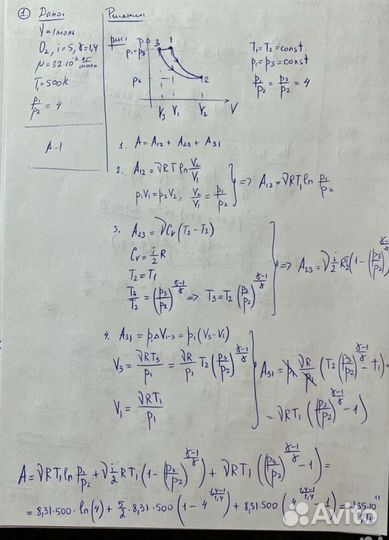 ① Дано:
ν = 1 моль
O₂, i = 5, γ = 1,4
μ = 32·10⁻³ кг/моль
T₁ = 500K
p₁/p₂ = 4
A - ?
Решение
рис 1
p
p₁=p₃
3 1
p₂
2
V₃ V₁ V₂ V
T₁ = T₂ = const
p₁ = p₃ = const
p₁/p₂ = p₃/p₂ = 4
1. A = A₁₂ + A₂₃ + A₃₁
2. A₁₂ = νRT ln V₂/V₁
p₁V₁ = p₂V₂, V₂/V₁ = p₁/p₂ } => A₁₂ = νRT₁ ln p₁/p₂
3. A₂₃ = νCᵥ(T₂ - T₃)
Cᵥ = i/2 R
T₂ = T₁
T₃/T₂ = (p₃/p₂)^((γ-1)/γ) => T₃ = T₂ (p₃/p₂)^((γ-1)/γ)
=> A₂₃ = ν i/2 R (1 - (p₃/p₂)
4. A₃₁ = p₁ΔV₁₋₃ = p₁(V₃ - V₁)
V₃ = νRT₃/p₁ = νR/p₁ T₂ (p₃/p₂)^((γ-1)/γ)
V₁ = νRT₁/p₁
A₃₁ = p₁ νR/p₁ (T₂ (p₃/p₂)^((γ-1)/γ) - T₁) =
= νRT₁ ((p₃/p₂)^((γ-1)/γ) - 1)
A = νRT₁ ln p₁/p₂ + ν i/2 RT₁ (1 - (p₃/p₂)^((γ-1)/γ)) + νRT₁ ((p₃/p₂)^((γ-1)/γ) - 1) =
= 8,31·500·ln(4) + 5/2·8,31·500 (1 - 4^((1,4-1)/1,4)) + 8,31·500 (4^((1,4-1)/1,4) - 1) =
Avito